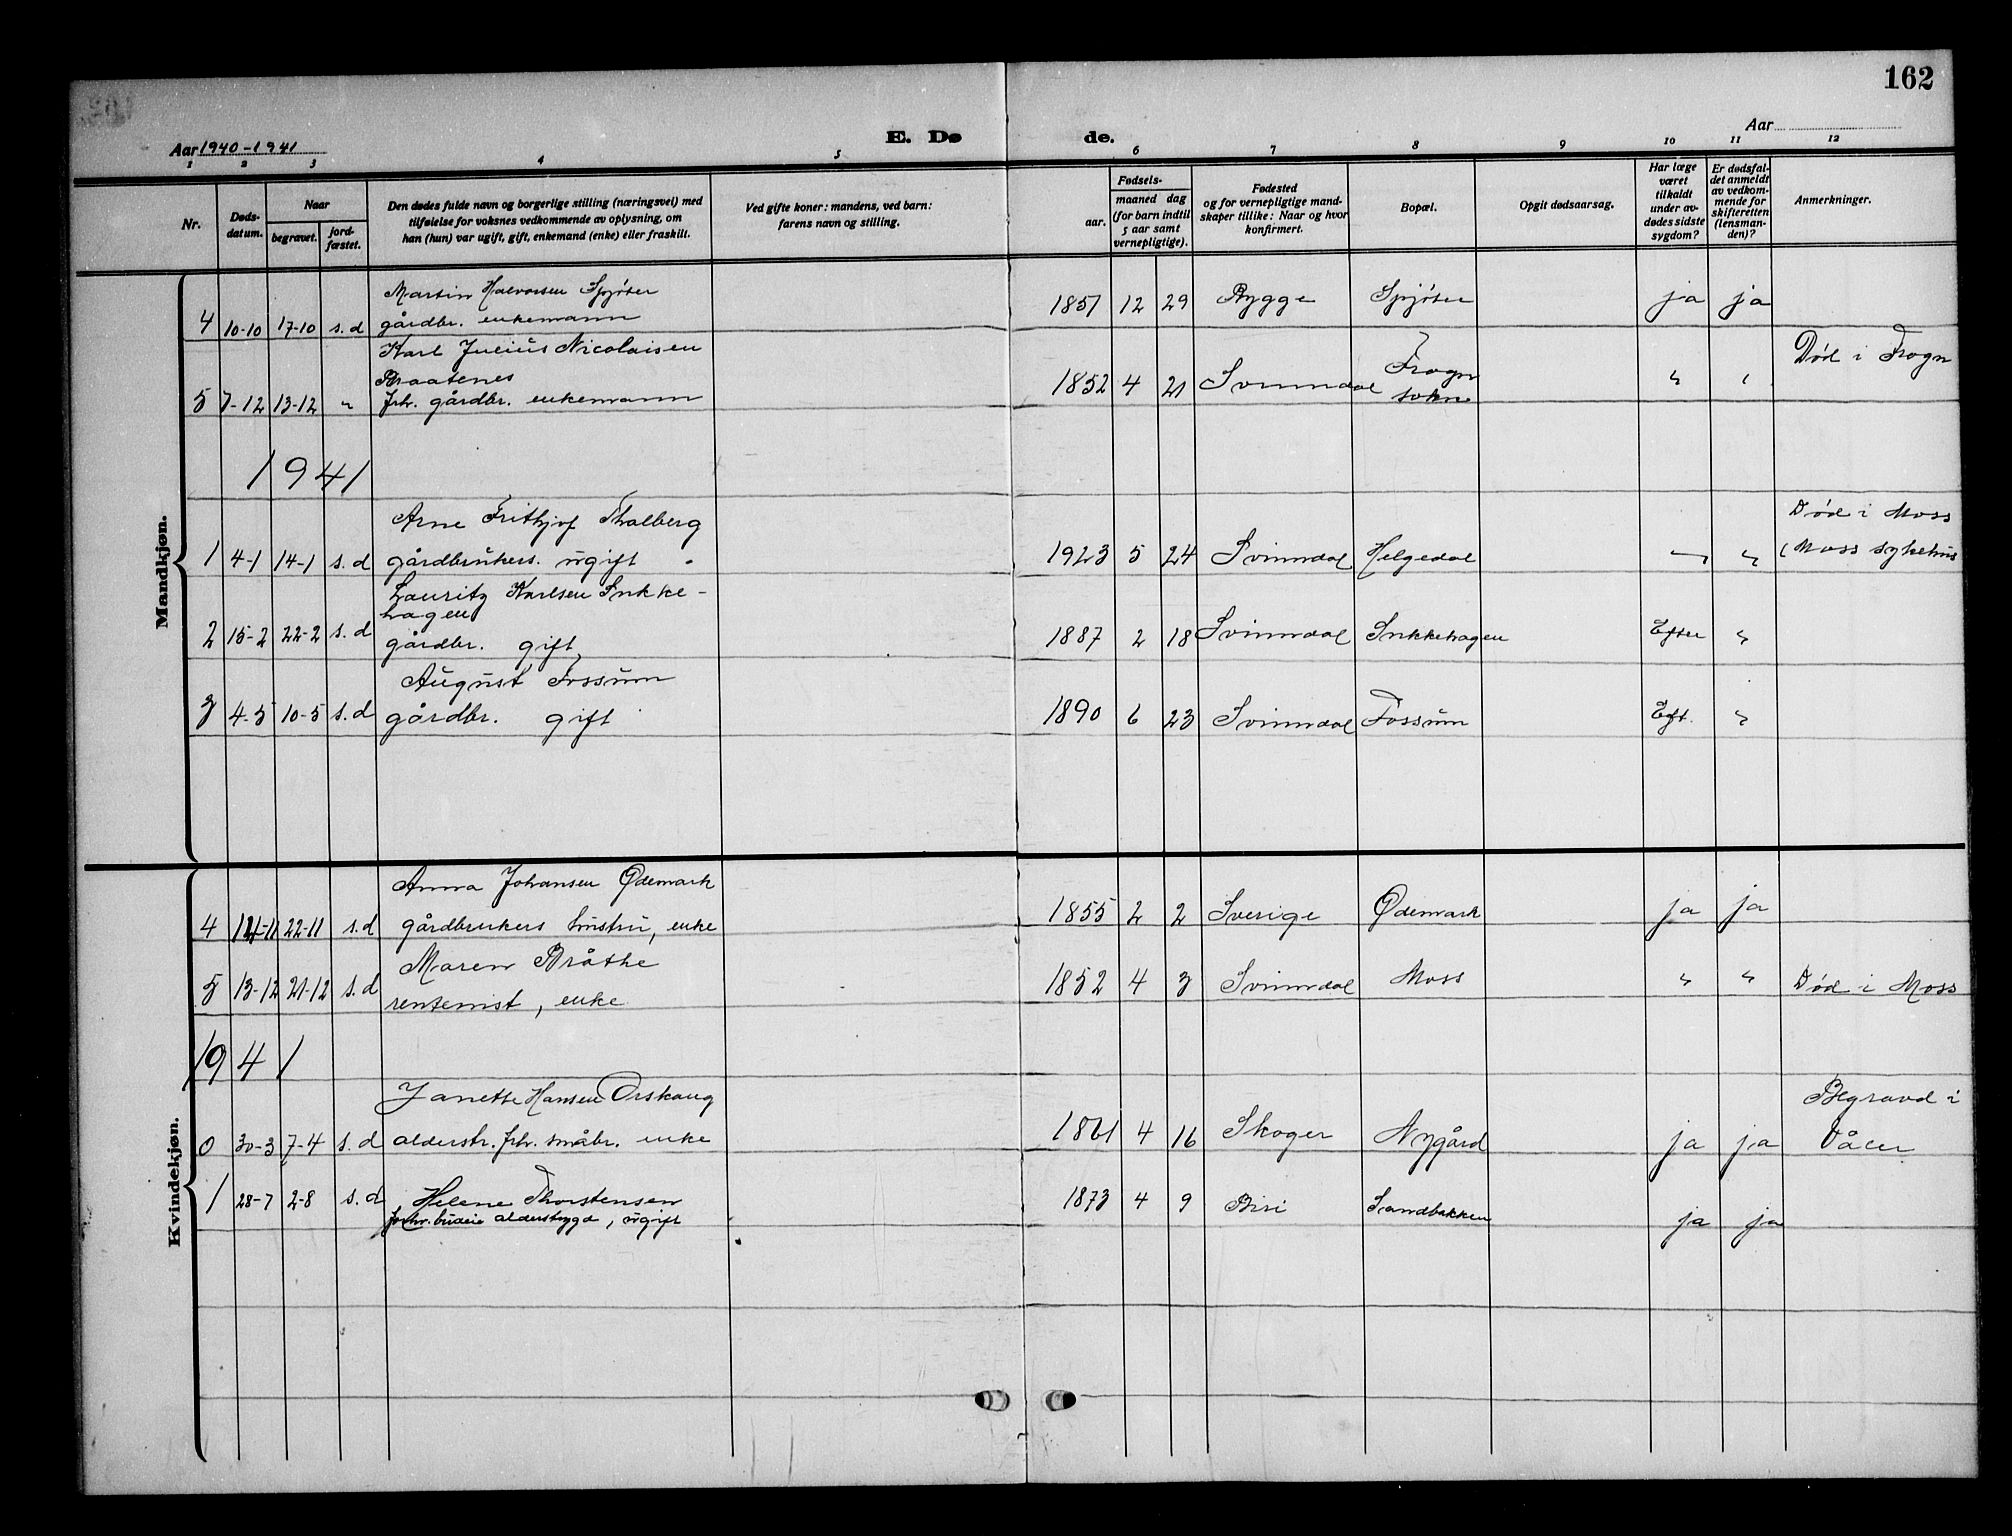 162
Aar 1940-1941
E. Dø
de.
Aar
1 2 3 4 5 6 7 8 9 10 11 12
Nr.
Døds-
datum.
Naar
begravet.
jord-
fæstet.
Den dødes fulde navn og borgerlige stilling (næringsvei) med
tilføielse for voksnes vedkommende av oplysning, om
han (hun) var ugift, gift, enkemand (enke) eller fraskilt.
Ved gifte koner: mandens, ved barn:
farens navn og stilling.
Fødsels-
aar.
maaned dag
(for barn indtil
5 aar samt
vernepligtige).
Fødested
og for vernepligtige mand-
skaper tillike: Naar og hvor
konfirmert.
Bopæl.
Opgit dødsaarsag.
Har læge
været
tilkaldt
under av-
dødes sidste
sygdom?
Er dødsfal-
det anmeldt
av vedkom-
mende for
skifteretten
(lensman-
den)?
Anmerkninger.
Mandkjøn.
Martin Halvorsen Spjøter
4 10-10 17-10 s.d gårdbr. enkemann 1851 12 29 Rygge Spjøter ja ja
Karl Julius Nicolaisen
Braatenes
5 7-12 13-12 " frh. gårdbr. enkemann 1852 4 21 Svinndal Frogn
sokn " " Død i Frogn
1941
Arne Frithjof Thalberg
1 4-1 14-1 s.d gårdbrukers. ugift 1923 5 24 Svinndal Helgedal " " Død i Moss
(Moss sykehus
Lauritz Karlsen Snkke-
hagen
2 15-2 22-2 s.d gårdbr. gift 1887 2 18 Svinndal Snkkehagen Efter "
August Fossum
3 4-5 10-5 s.d gårdbr. gift 1890 6 23 Svinndal Fossum Eft. "
Kvindekjøn.
Anna Johansen Ødemark
4 14-11 22-11 s.d gårdbrukers hustru, enke 1855 2 2 Sverige Ødemark ja ja
Maren Bråthe
5 13-12 21-12 s.d rentenist, enke 1852 4 3 Svinndal Moss " " Død i Moss
1941
Janette Hansen Orskaug
0 30-3 7-4 s.d alderstr. frh. småbr. enke 1861 4 16 Skoger Nygård ja ja Begravd i
Våler
1 28-7 2-8 s.d Helene Thorstensen
forhv. budeie alderstrygd, ugift 1873 4 9 Biri Sandbakken ja ja